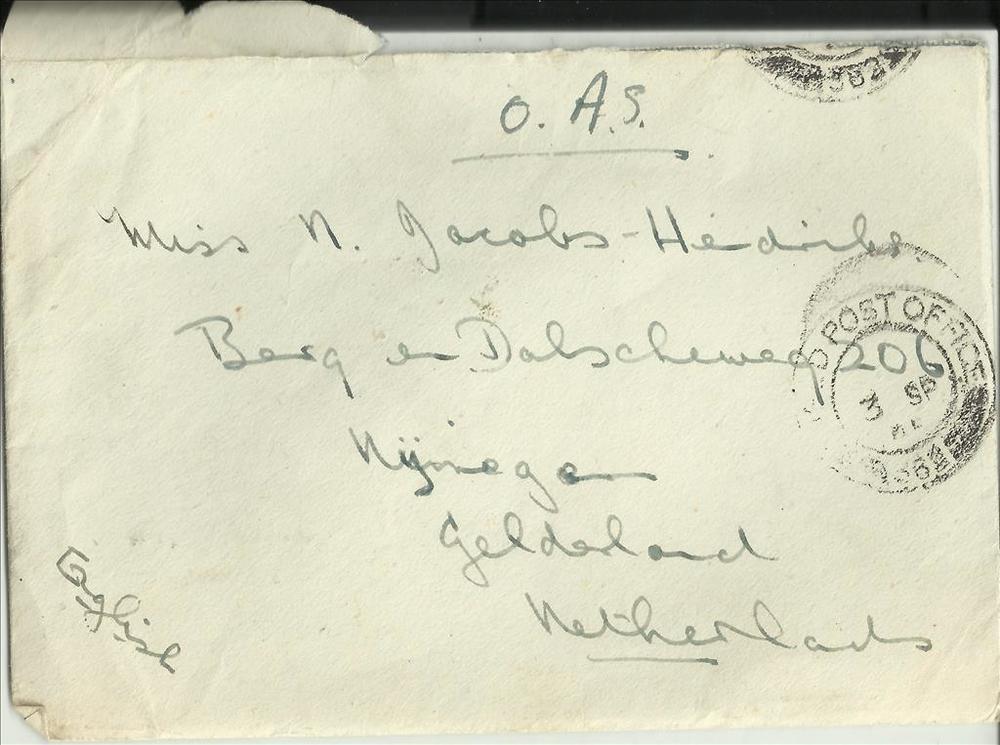 O. A. S.
Miss N. Jacobs-Hendriks.
Berg en Dalscheweg 206
Nijmegen
Gelderland
Netherlands
English
POST OFFICE
3 SP